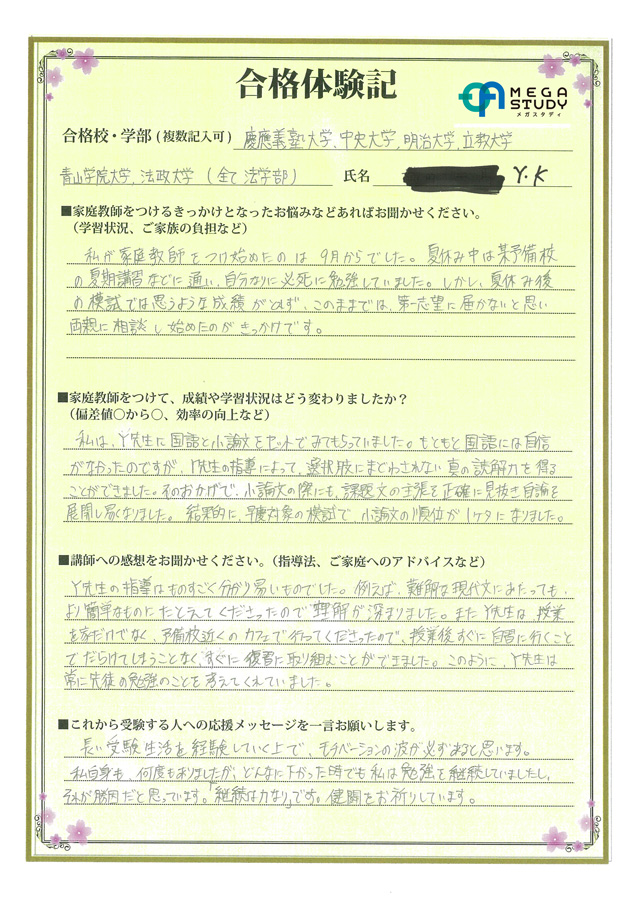 合格体験記
MEGA
STUDY
メガスタディ
合格校・学部(複数記入可) 慶應義塾大学、中央大学、明治大学、立教大学
青山学院大学、法政大学 (全て法学部) 氏名 Y.K
■家庭教師をつけるきっかけとなったお悩みなどあればお聞かせください。
(学習状況、ご家族の負担など)
私が家庭教師をつけ始めたのは9月からでした。夏休み中は某予備校
の夏期講習などに通い、自分なりに必死に勉強していました。しかし、夏休み後
の模試では思うような成績が出ず、このままでは、第一志望に届かないと思い
両親に相談し始めたのがきっかけです。
■家庭教師をつけて、成績や学習状況はどう変わりましたか？
(偏差値〇から〇、効率の向上など)
私は、Y先生に国語と小論文をセットでみてもらっていました。もともと国語には自信
がなかったのですが、Y先生の指導によって、選択肢にまどわされない真の読解力を得る
ことができました。そのおかげで、小論文の際にも、課題文の主張を正確に見抜き自論を
展開し易くなりました。結果的に、早慶対象の模試で、小論文の順位が1ケタになりました。
■講師への感想をお聞かせください。(指導法、ご家庭へのアドバイスなど)
Y先生の指導はものすごく分かり易いものでした。例えば、難解な現代文にあたっても、
より簡単なものにたとえてくださったので理解が深まりました。またY先生は、授業
を家だけでなく、予備校近くのカフェで行ってくださったので、授業後すぐに自習に行くこと
でだらけてしまうことなく、すぐに復習に取り組むことができました。このように、Y先生は
常に生徒の勉強のことを考えてくれていました。
■これから受験する人への応援メッセージを一言お願いします。
長い受験生活を経験していく上で、モチベーションの波が必ずあると思います。
私自身も、何度もありましたが、どんなに下がった時でも私は勉強を継続していましたし、
それが勝因だと思っています。「継続は力なり」です。健闘をお祈りしています。